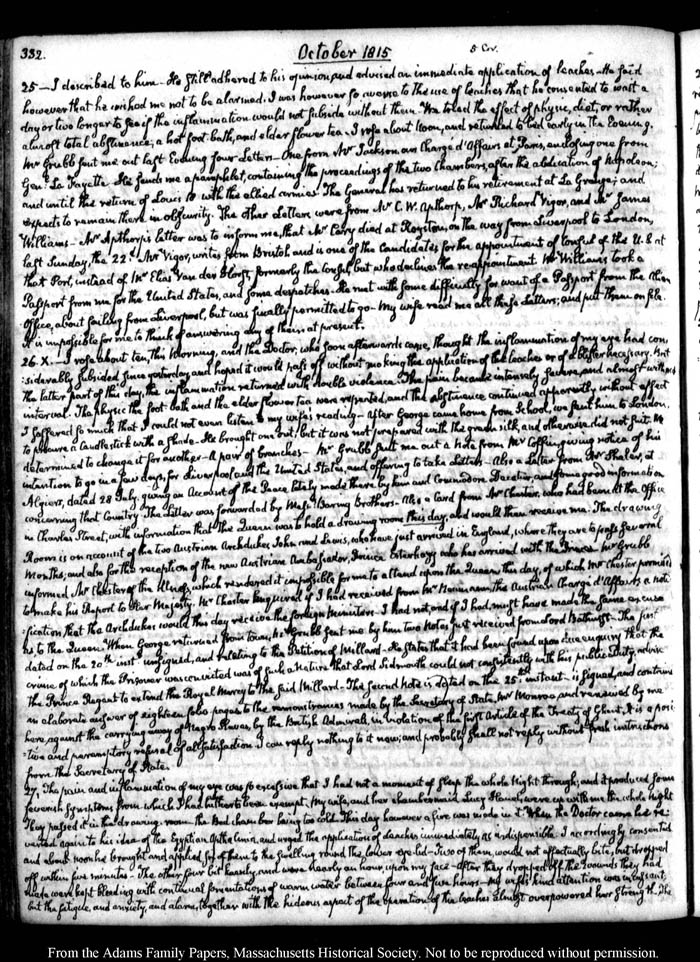 332. October 1815 
25 — I described to him — He still adhered to his opinion, and advised an immediate application of leaches — He said
however that he wished me not to be alarmed. I was however so averse to the use of leaches that he consented to wait a
day or two longer to see if the inflammation would not subside without them. We tried the effect of physic, diet, or rather
almost total abstinence, a hot foot-bath, and elder flower tea. I rose about Noon, and returned to bed early in the Evening.
Mr Grubb sent me out last Evening four Letters — One from Mr Jackson our Chargé d'Affairs at Paris, enclosing one from
Genl. La Fayette. He sends me a pamphlet, containing the proceedings of the two Chambers, after the abdication of Napoleon;
and until the return of Louis 18 with the allied armies. The General has returned to his retirement at La Grange; and
expects to remain there in obscurity. The other Letters were from Mr C. W. Apthorp, Mr Richard Vigor, and Mr James
Williams — Mr Apthorp's letter was to inform me, that Mr Carey died at Royston, on the way from Liverpool to London,
last Sunday, the 22d. Mr Vigor, writes from Bristol, and is one of the Candidates for the appointment of Consul of the U.S. at
that Port, instead of Mr Elias Van der Horst, formerly the Consul, but who declines the reappointment. Mr Williams took a
Passport from me for the United States, and some despatches. He met with some difficulty for want of a Passport from the Alien
Office, about sailing from Liverpool, but was finally permitted to go — My wife read me all these Letters; and put them on file.
It is impossible for me to think of answering any of them at present.
26. X. — I rose about ten, this morning, and the Doctor, who soon afterwards came, thought the inflammation of my eye had con-
siderably subsided since yesterday, and hoped it would pass off without making the application of the leaches or of a blister necessary. But
the latter part of this day, the inflammation returned with double violence. The pain became intensely severe, and almost without
interval. The physic the foot bath and the elder flower tea were repeated, and the abstinence continued apparently without effect
I suffered so much that I could not even listen to my wife's reading — After George came home from School, we sent him to London,
to procure a Candlestick with a shade. He brought one out, but it was not prepared with the green silk, and otherwise did not suit. We
determined to change it for another — A pair of branches — Mr Grubb sent me out a Note from Mr Coffin giving notice of his
intention to go in a few days, for Liverpool and the United States, and offering to take Letters — Also a Letter from Mr Shaler, at
Algiers, dated 28 July giving an Account of the Peace lately made there by him and Commodore Decatur, and some good information
concerning that Country. The Letter was forwarded by Messrs Baring Brothers — Also a Card from Mr Chester, who had been at the Office
in Charles Street, with information that The Queen was to hold a drawing room this day, and would then receive me. The drawing
Room is on account of the two Austrian Archdukes John and Lewis, who have just arrived in England, where they are to pass several
Months, and also for the reception of the new Austrian Ambassador, Prince Esterhazy who has arrived with the Princes. Mr Grubb
informed Mr Chester of the illness, which rendered it impossible for me to attend upon the Queen this day, of which Mr Chester promised
to make his Report to Her Majesty. Mr Chester enquired if I had received from Mr Neumann, the Austrian Chargé d'Affairs a noti-
fication that the Archdukes would this day receive the foreign Ministers. I had not, and if I had, must have made the same excuse
as to the Queen. When George returned from town, Mr Grubb sent me by him two Notes just received from Lord Bathurst — The first
dated on the 20th inst. unsigned, and relating to the Petition of Millard. He states that it had been found upon due enquiry that the
crime of which the Prisoner was convicted was of such a Nature that Lord Sidmouth could not consistently with his public Duty, advise
the Prince Regent to extend the Royal Mercy to the said Millard — The second Note is dated on the 25th instant — is signed, and contains
an elaborate answer of eighteen folio pages to the remonstrances made by the Secretary of State, Mr Monroe, and renewed by me
here, against the carrying away of Negro Slaves, by the British Admirals, in violation of the first Article of the Treaty of Ghent. It is a posi-
tive and peremptory refusal of all satisfaction. I can reply nothing to it now; and probably shall not reply without fresh instructions
from the Secretary of State.
27. The pain and inflammation of my eye was so excessive that I had not a moment of sleep the whole Night through; and it produced some
feverish symptoms from which I had hitherto been exempt. My wife, and her chambermaid Lucy Houel, were up with me the whole Night
They passed it in the drawing-room, the Bed chamber being too cold. This day however a fire was made in it. When the Doctor came he re-
verted again to his idea of the Egyptian Opthalmia, and urged the application of leaches immediately, as indispensible. I accordingly consented
and about noon he brought and applied six of them to the swelling round the lower eye-lid — Two of them, would not effectually bite, but dropped
off within five minutes — The other four bit keenly, and were nearly an hour upon my face — After they dropped off the wounds they had
made were kept bleeding with continual fomentations of warm water between four and five hours — My wife's kind attention was incessant;
but the fatigue, and anxiety, and alarm, together with the hideous aspect of the operation of the leaches almost overpowered her strength. The
From the Adams Family Papers, Massachusetts Historical Society. Not to be reproduced without permission.